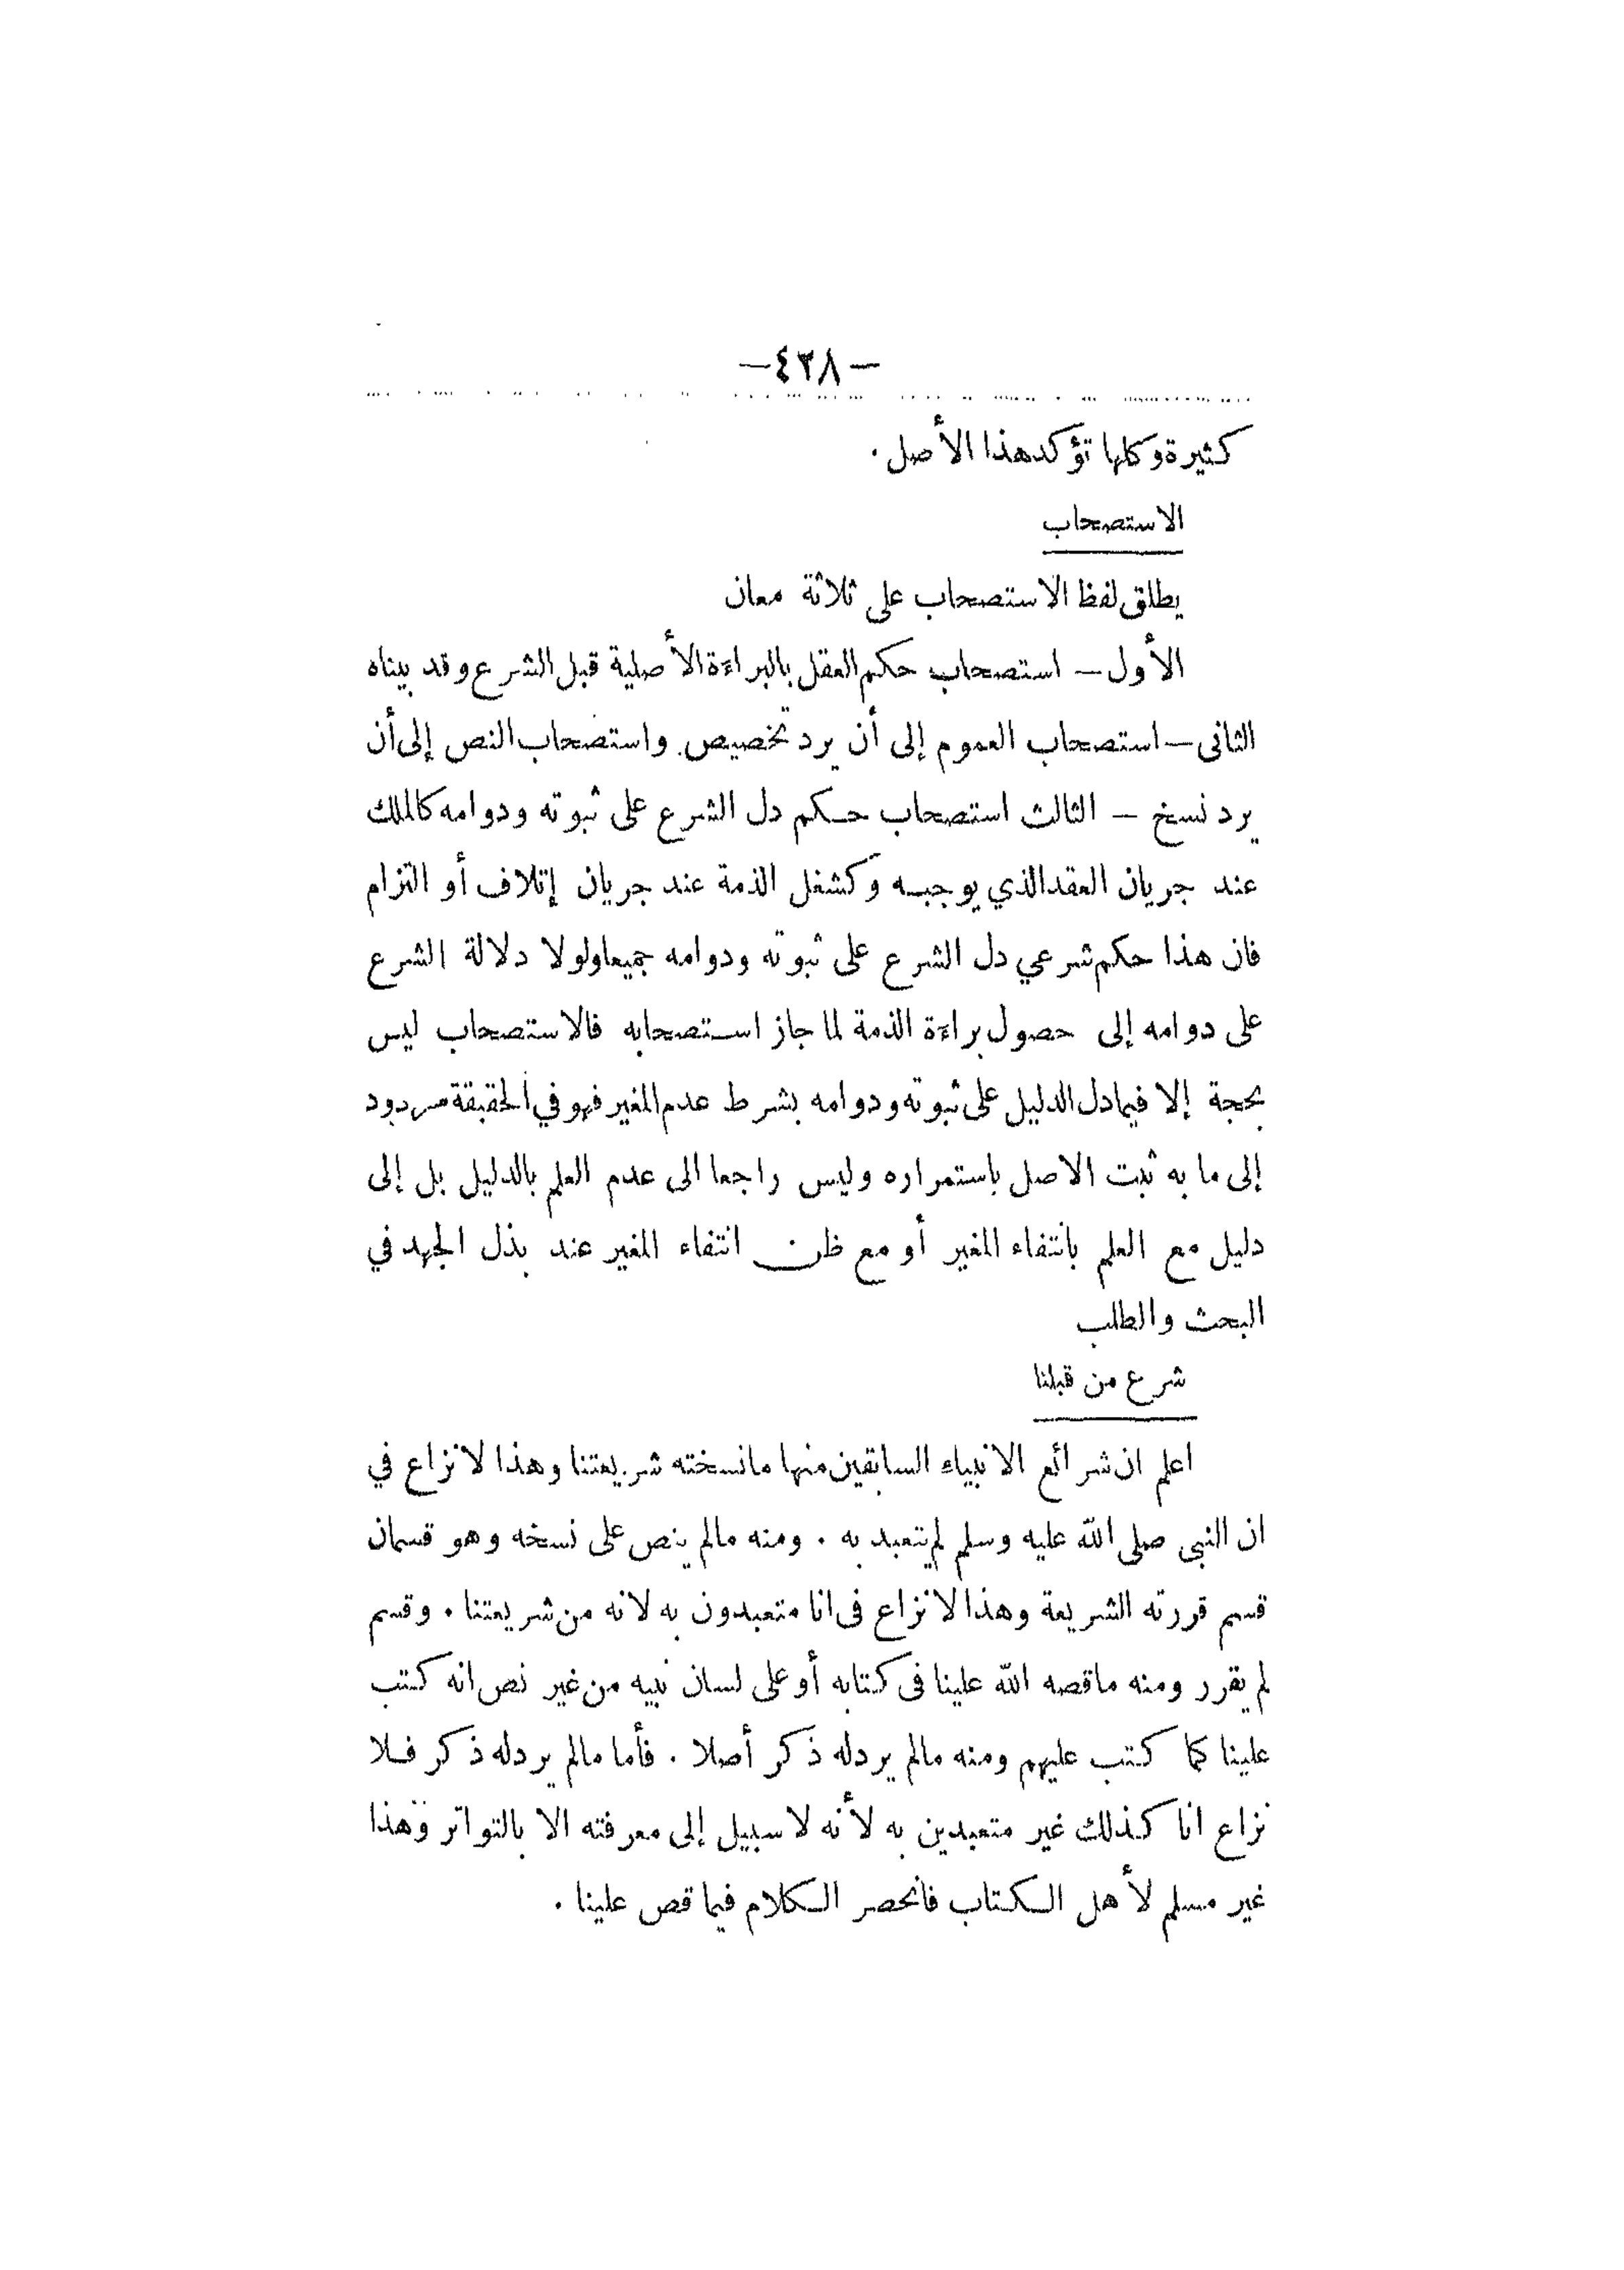 —٤٣٨—
كثيرة وكلها تؤكد هذا الأصل.
الاستصحاب
يطلق لفظ الاستصحاب على ثلاثة معان
الأول — استصحاب حكم العقل بالبراءة الأصلية قبل الشرع وقد بيناه
الثانى — استصحاب العموم إلى أن يرد تخصيص واستصحاب النص إلى أن
يرد نسخ — الثالث استصحاب حكم دل الشرع على ثبوته ودوامه كالملك
عند جريان العقد الذي يوجبه وكشغل الذمة عند جريان إتلاف أو التزام
فان هذا حكم شرعي دل الشرع على ثبوته ودوامه جميعا ولولا دلالة الشرع
على دوامه إلى حصول براءة الذمة لما جاز استصحابه فالاستصحاب ليس
بحجة إلا فيما دل الدليل على ثبوته ودوامه بشرط عدم المغير فهو في الحقيقة مردود
إلى ما به ثبت الاصل باستمراره وليس راجعا الى عدم العلم بالدليل بل إلى
دليل مع العلم بانتفاء المغير أو مع ظن انتفاء المغير عند بذل الجهد في
البحث والطلب
شرع من قبلنا
اعلم ان شرائع الانبياء السابقين منها ما نسخته شريعتنا وهذا لا نزاع في
ان النبى صلى الله عليه وسلم لم يتعبد به . ومنه مالم ينص على نسخه وهو قسمان
قسم قررته الشريعة وهذا لا نزاع فى انا متعبدون به لانه من شريعتنا . وقسم
لم يقرر ومنه ماقصه الله علينا فى كتابه أو على لسان نبيه من غير نص انه كتب
علينا كما كتب عليهم ومنه مالم يرد له ذكر أصلا . فأما مالم يرد له ذكر فلا
نزاع انا كذلك غير متعبدين به لأنه لا سبيل إلى معرفته الا بالتواتر وهذا
غير مسلم لأهل الكتاب فانحصر الكلام فيما قص علينا .